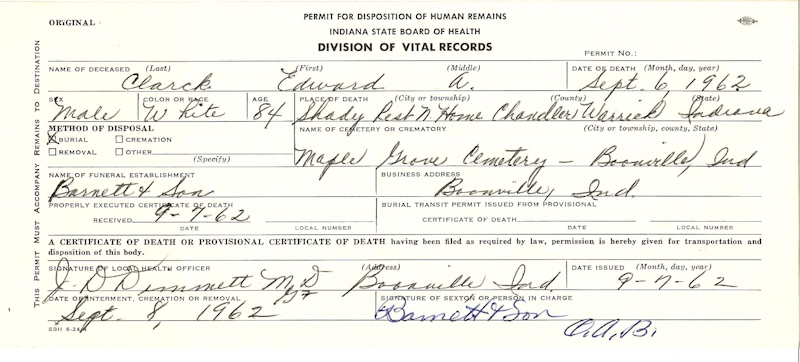 ORIGINAL
PERMIT FOR DISPOSITION OF HUMAN REMAINS
INDIANA STATE BOARD OF HEALTH
DIVISION OF VITAL RECORDS
PERMIT NO.:
THIS PERMIT MUST ACCOMPANY REMAINS TO DESTINATION
NAME OF DECEASED (Last) (First) (Middle) DATE OF DEATH (Month, day, year)
Clarck Edward A. Sept. 6, 1962
SEX COLOR OR RACE AGE PLACE OF DEATH (City or township) (County) (State)
Male White 84 Shady Rest N Home Chandler Warrick Indiana
METHOD OF DISPOSAL NAME OF CEMETERY OR CREMATORY (City or township, county, State)
BURIAL CREMATION
REMOVAL OTHER (Specify)
Maple Grove Cemetery - Boonville, Ind
NAME OF FUNERAL ESTABLISHMENT BUSINESS ADDRESS
Barnett & Son Boonville, Ind.
PROPERLY EXECUTED CERTIFICATE OF DEATH BURIAL TRANSIT PERMIT ISSUED FROM PROVISIONAL
RECEIVED 9-7-62 CERTIFICATE OF DEATH
DATE LOCAL NUMBER DATE LOCAL NUMBER
A CERTIFICATE OF DEATH OR PROVISIONAL CERTIFICATE OF DEATH having been filed as required by law, permission is hereby given for transportation and
disposition of this body.
SIGNATURE OF LOCAL HEALTH OFFICER (Address) DATE ISSUED (Month, day, year)
J. D. Dimmett M.D Boonville Ind. 9-7-62
DATE OF INTERMENT, CREMATION OR REMOVAL SIGNATURE OF SEXTON OR PERSON IN CHARGE
Sept. 8, 1962 Barnett & Son
SBH 6-24